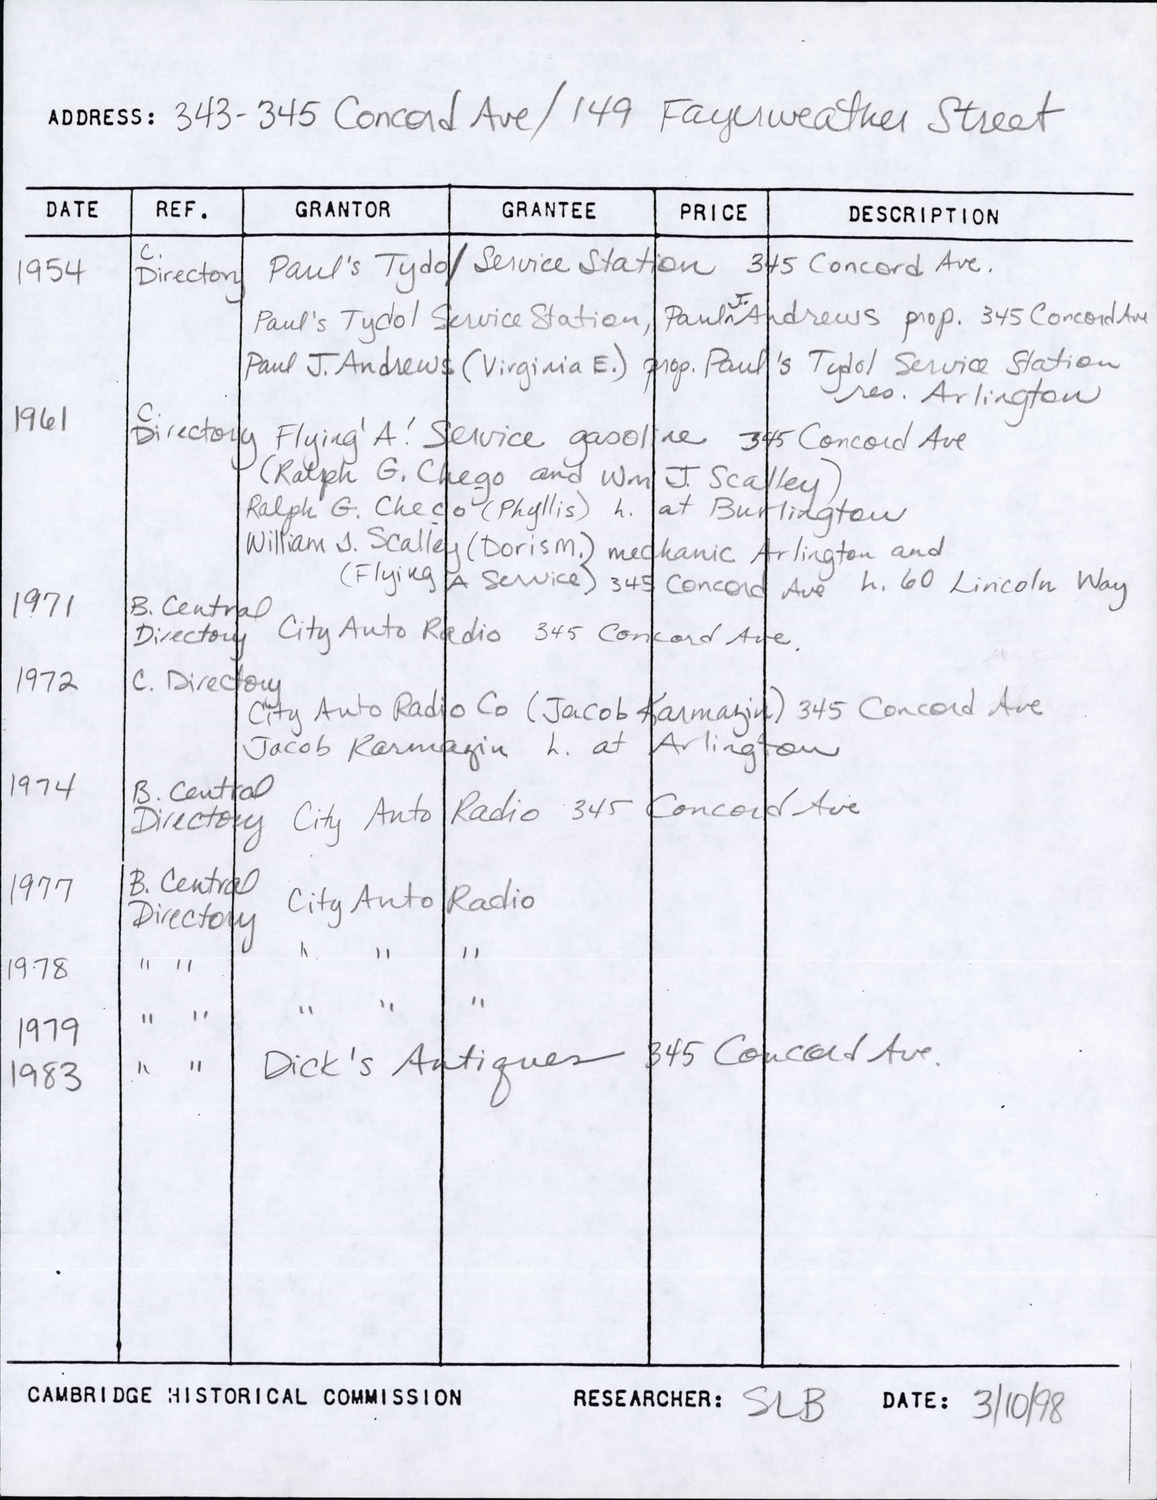 ADDRESS: 343-345 Concord Ave/149 Fayerweather Street
DATE REF. GRANTOR GRANTEE PRICE DESCRIPTION
1954 C. Directory Paul's Tydol Service Station 345 Concord Ave.
Paul's Tydol Service Station, Paul J. Andrews prop. 345 Concord Ave
Paul J. Andrews (Virginia E.) prop. Paul's Tydol Service Station
res. Arlington
1961 C. Directory Flying 'A' Service gasoline 345 Concord Ave
(Ralph G. Chego and Wm J. Scalley)
Ralph G. Chego (Phyllis) h. at Burlington
William J. Scalley (Doris M.) mechanic Arlington and
(Flying A Service) 345 Concord Ave h. 60 Lincoln Way
1971 B. Central
Directory City Auto Radio 345 Concord Ave.
1972 C. Directory
City Auto Radio Co (Jacob Karmazin) 345 Concord Ave
Jacob Karmazin h. at Arlington
1974 B. Central
Directory City Auto Radio 345 Concord Ave
1977 B. Central
Directory City Auto Radio
1978 " " " " "
1979 " " " " "
1983 " " Dick's Antiques 345 Concord Ave.
CAMBRIDGE HISTORICAL COMMISSION RESEARCHER: SLB DATE: 3/10/98